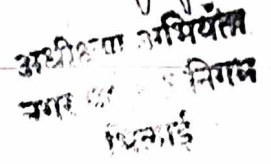 अधीक्षण अभियंता
नगर निगम
भिलाई